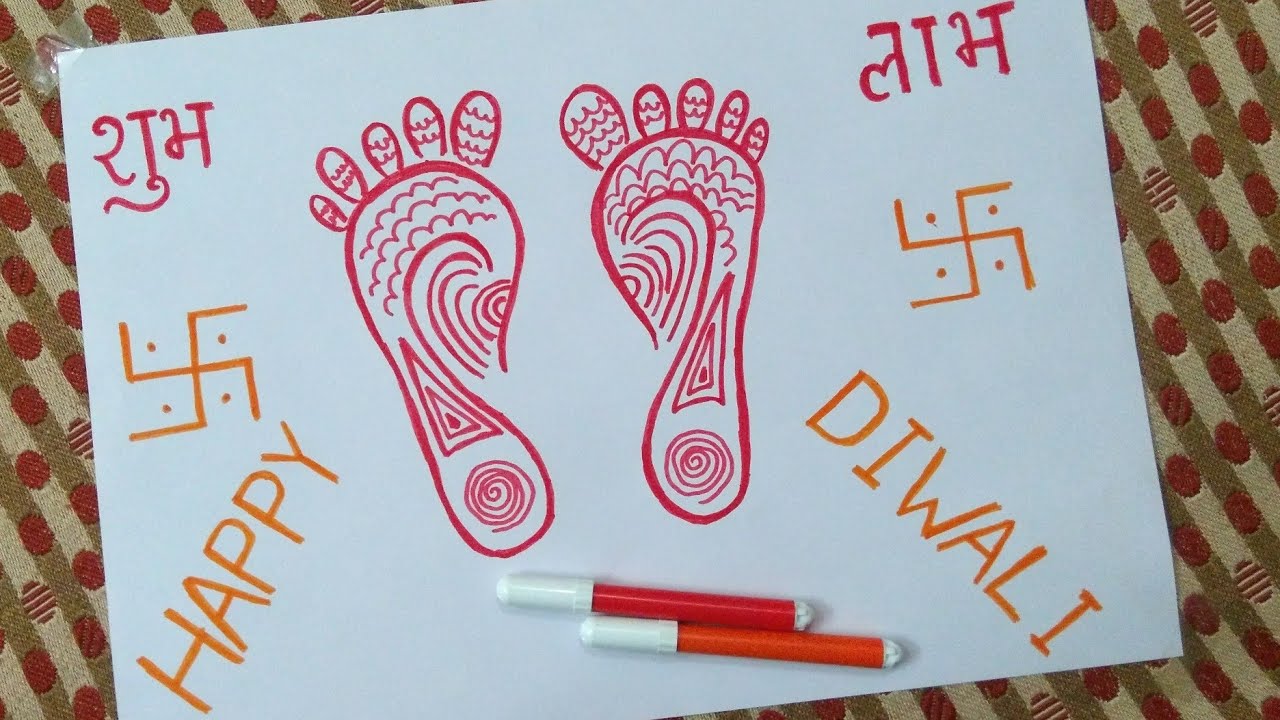 शुभ
लाभ
HAPPY
DIWALI